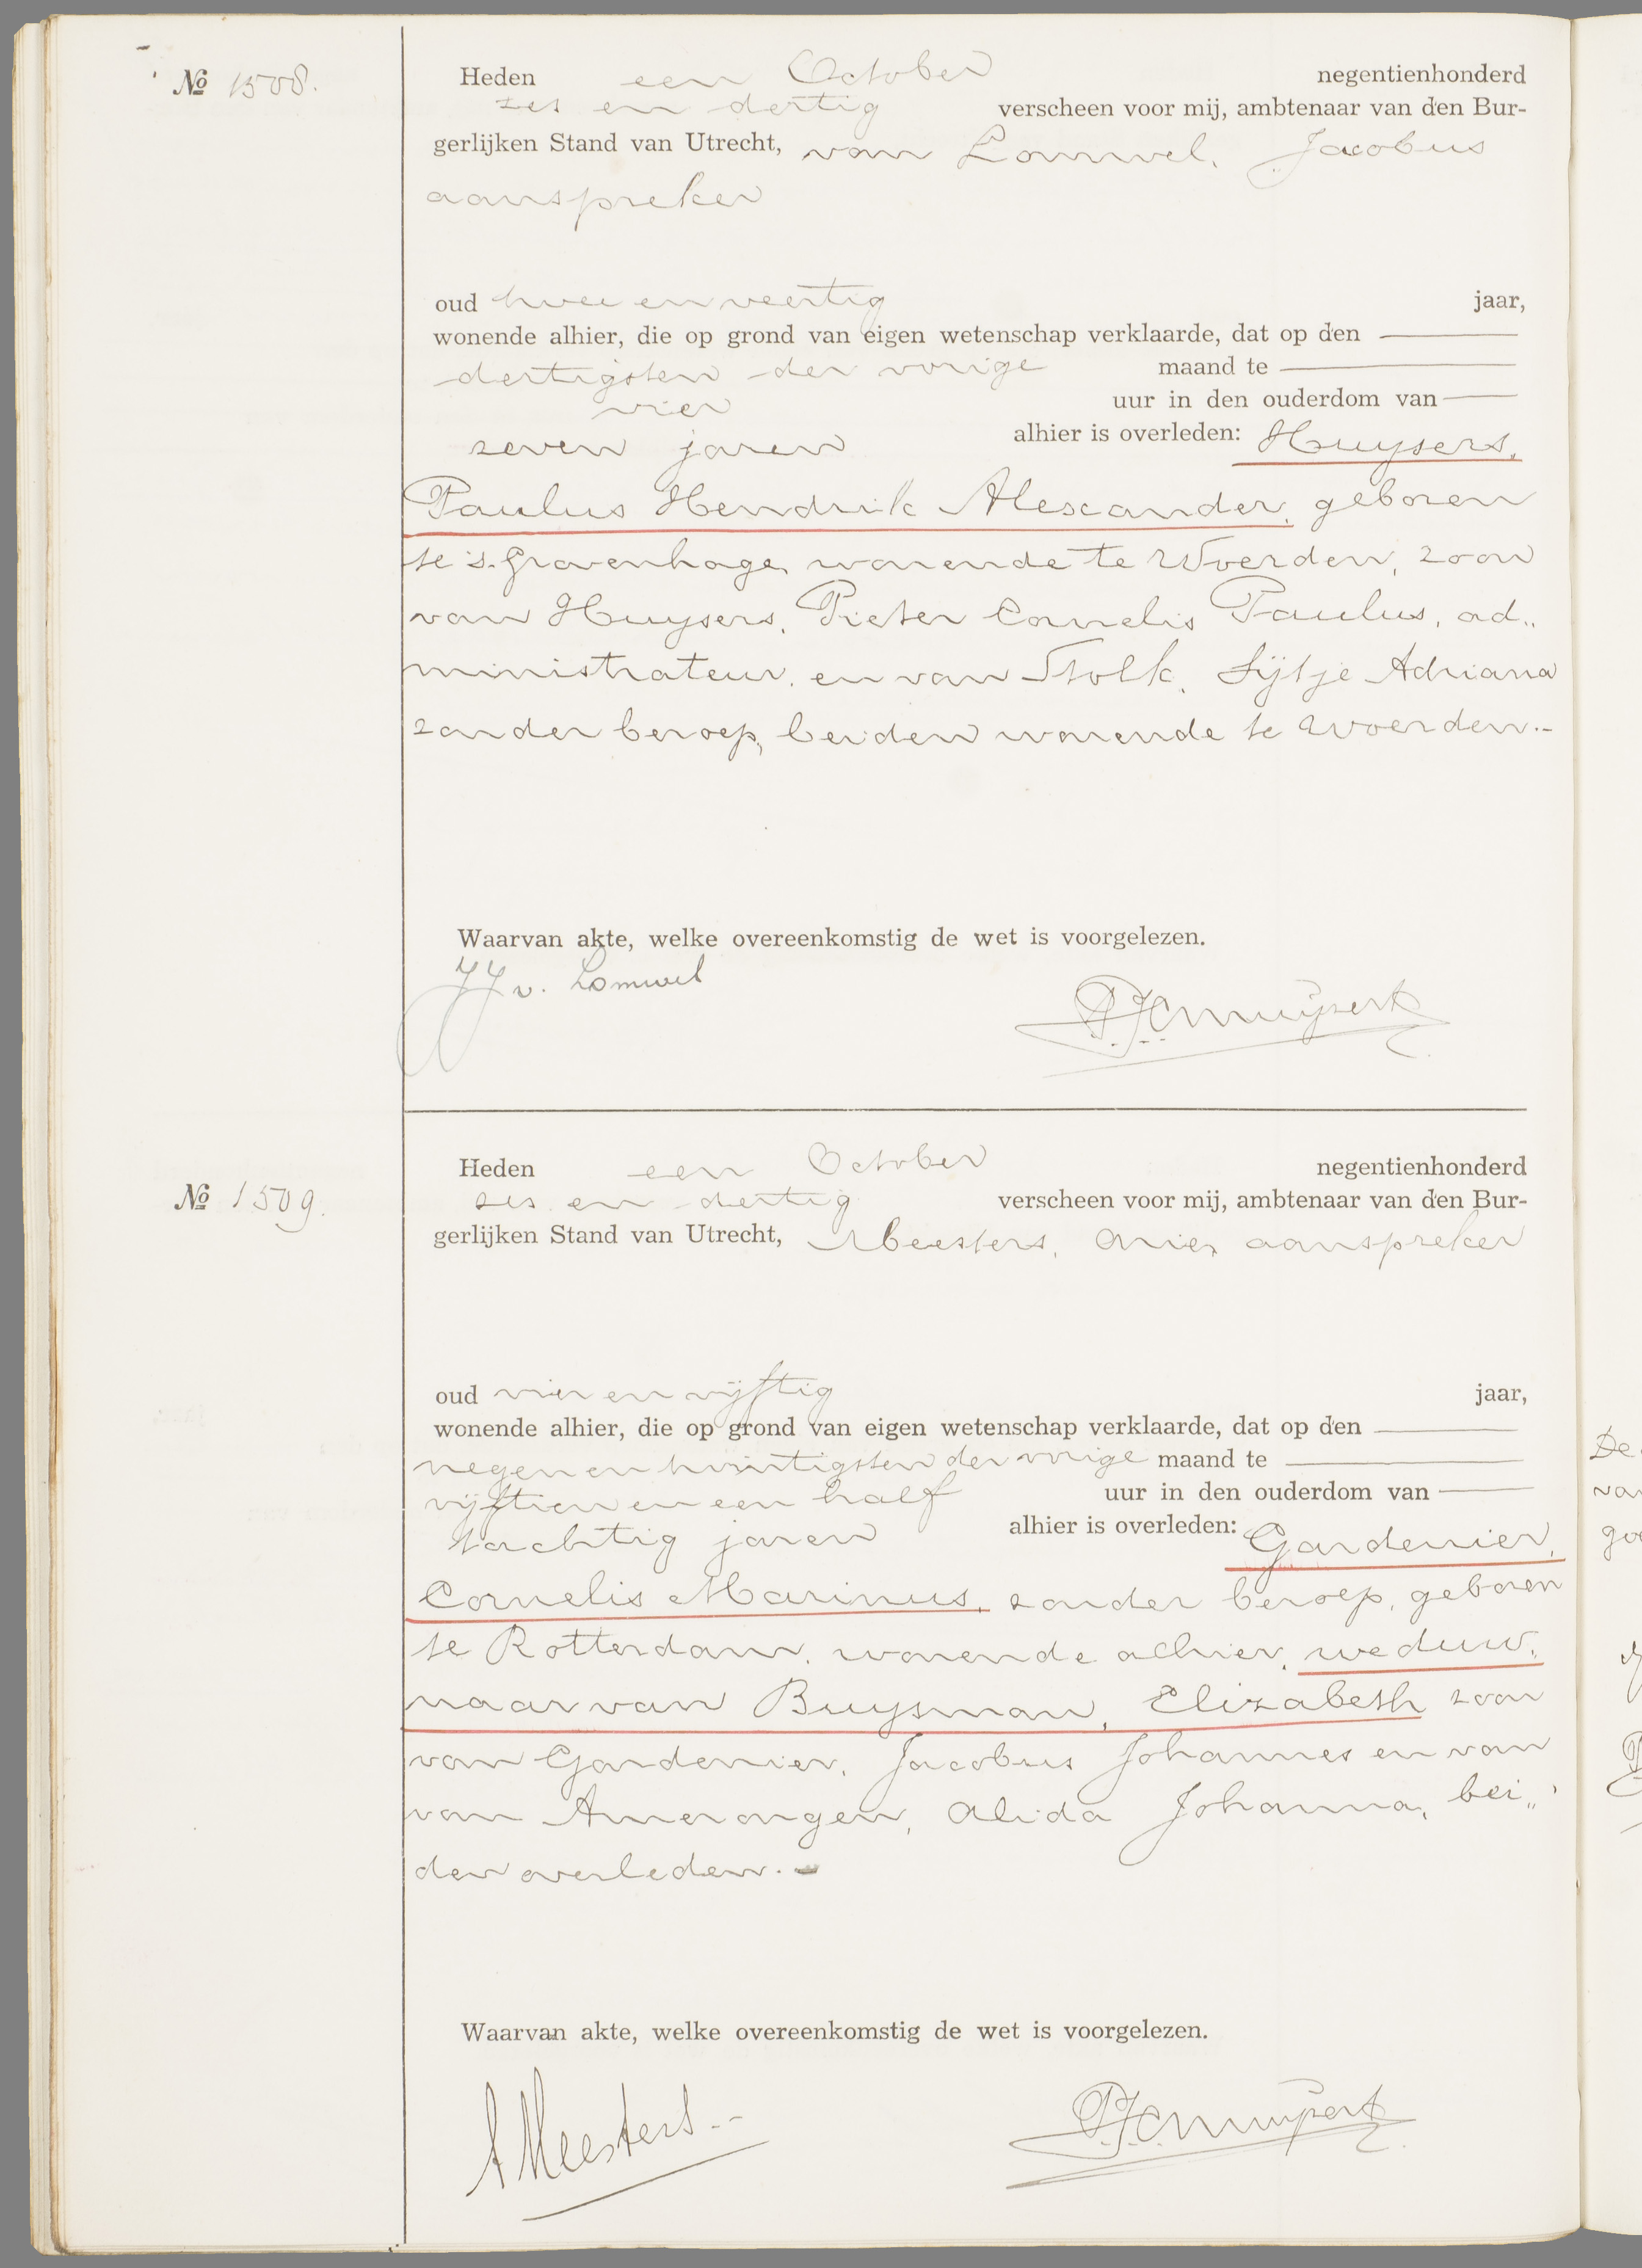 Nº 1508.
Heden een October negentienhonderd
zes en dertig verscheen voor mij, ambtenaar van den Bur-
gerlijken Stand van Utrecht, van Lomwel, Jacobus
aanspreker
oud twee en veertig jaar,
wonende alhier, die op grond van eigen wetenschap verklaarde, dat op den
dertigsten der vorige maand te
vier uur in den ouderdom van
zeven jaren alhier is overleden: Huysers,
Paulus Hendrik Alexander, geboren
te 's-Gravenhage, wonende te Woerden, zoon
van Huysers, Pieter Cornelis Paulus, ad„
ministrateur, en van Stolk, Sijtje Adriana
zonder beroep, beiden wonende te Woerden.-
Waarvan akte, welke overeenkomstig de wet is voorgelezen.
JJ v. Lomwel
Nº 1509.
Heden een October negentienhonderd
zes en dertig verscheen voor mij, ambtenaar van den Bur-
gerlijken Stand van Utrecht, Meesters, Arie, aanspreker
oud vier en vijftig jaar,
wonende alhier, die op grond van eigen wetenschap verklaarde, dat op den
negen en twintigsten der vorige maand te
vijftien en een half uur in den ouderdom van
tachtig jaren alhier is overleden: Gardenier,
Cornelis Marinus, zonder beroep, geboren
te Rotterdam, wonende alhier, weduw„
naar van Buysman, Elizabeth zoon
van Gardenier, Jacobus Johannes en van
van Amerongen, Alida Johanna, bei„
den overleden.-
Waarvan akte, welke overeenkomstig de wet is voorgelezen.
A Meesters